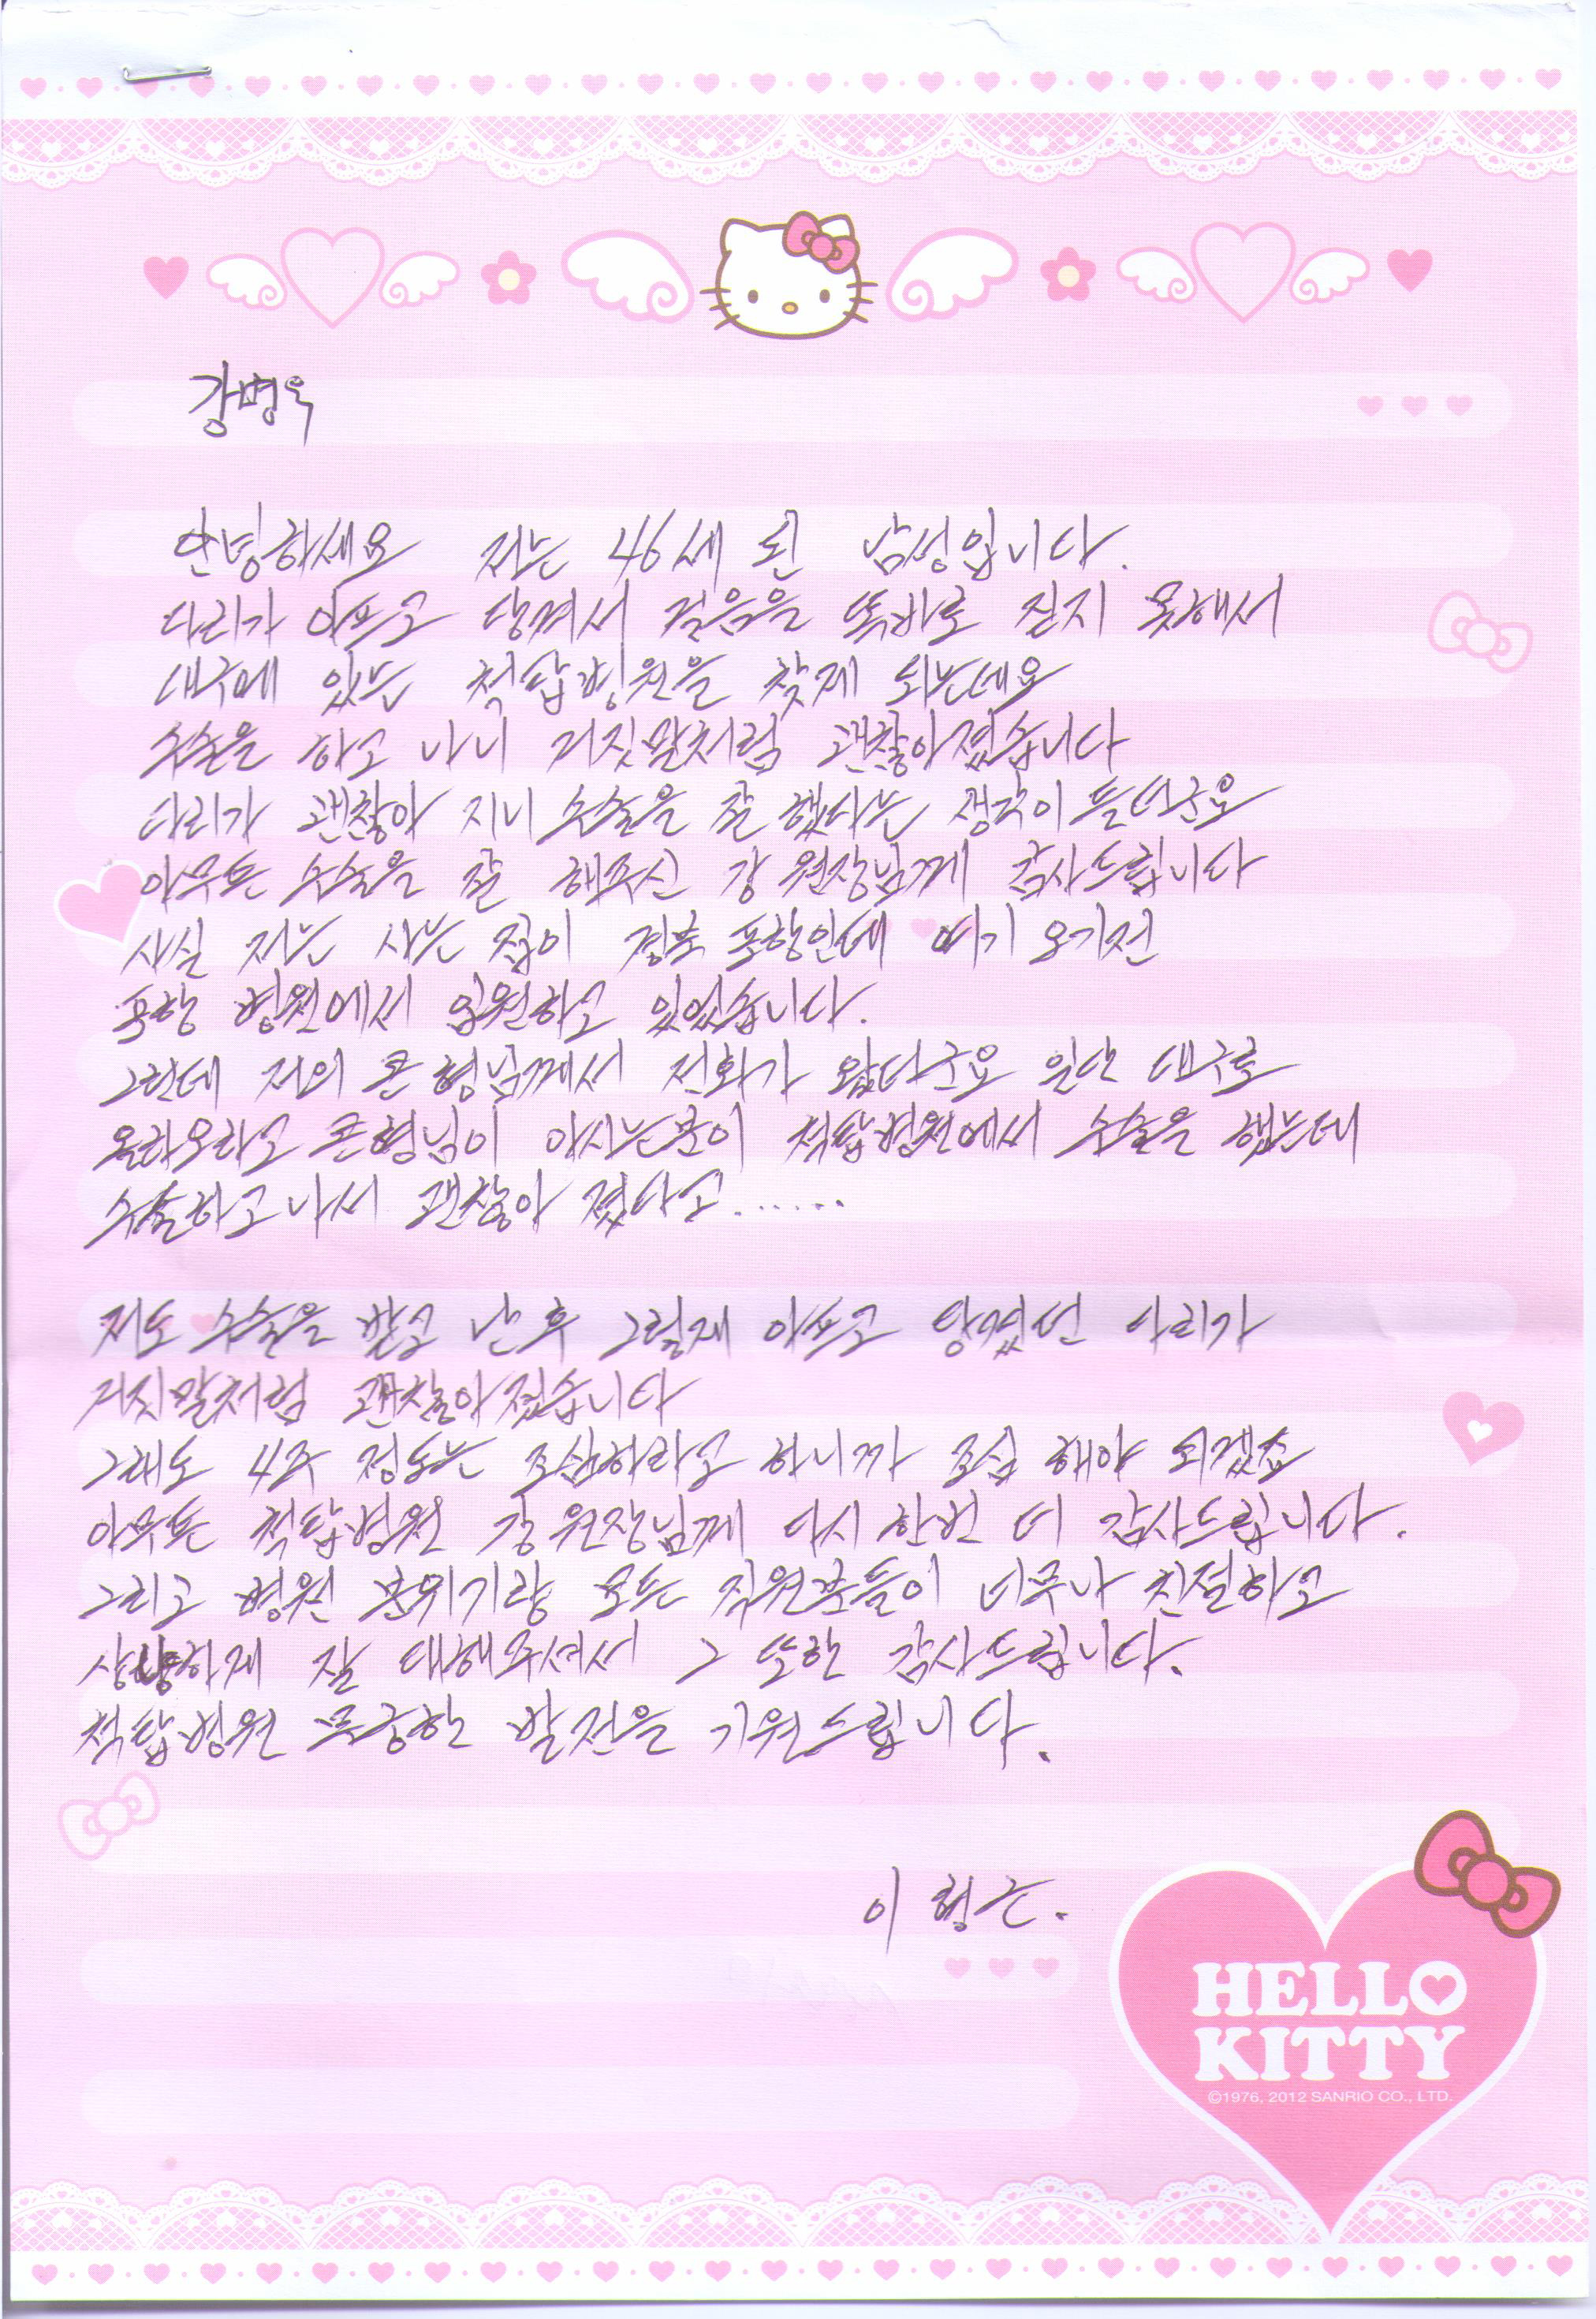 강병욱
안녕하세요 저는 46세 된 남성입니다.
다리가 아프고 당겨서 걸음을 똑바로 걷지 못해서
대구에 있는 척탑병원을 찾게 되는데요
수술을 하고 나니 거짓말처럼 괜찮아졌습니다
다리가 괜찮아 지니 수술을 잘 했다는 생각이 들더군요
아무튼 수술을 잘 해주신 강 원장님께 감사드립니다
사실 저는 사는 집이 경북 포항인데 여기 오기전
포항 병원에서 입원하고 있었습니다.
그런데 저의 큰 형님께서 전화가 왔더군요 일단 대구로
올라오라고 큰형님이 아시는분이 척탑병원에서 수술을 했는데
수술하고 나서 괜찮아 졌다고.......
저도 수술을 받고 난 후 그렇게 아프고 당겼던 다리가
거짓말처럼 괜찮아졌습니다
그래도 4주 정도는 조심하라고 하니까 조심 해야 되겠죠
아무튼 척탑병원 강 원장님께 다시 한번 더 감사드립니다.
그리고 병원 분위기랑 모든 직원분들이 너무나 친절하고
상냥하게 잘 대해주셔서 그 또한 감사드립니다.
척탑병원 무궁한 발전을 기원드립니다.
이형근.
HELLO
KITTY
©1976, 2012 SANRIO CO., LTD.